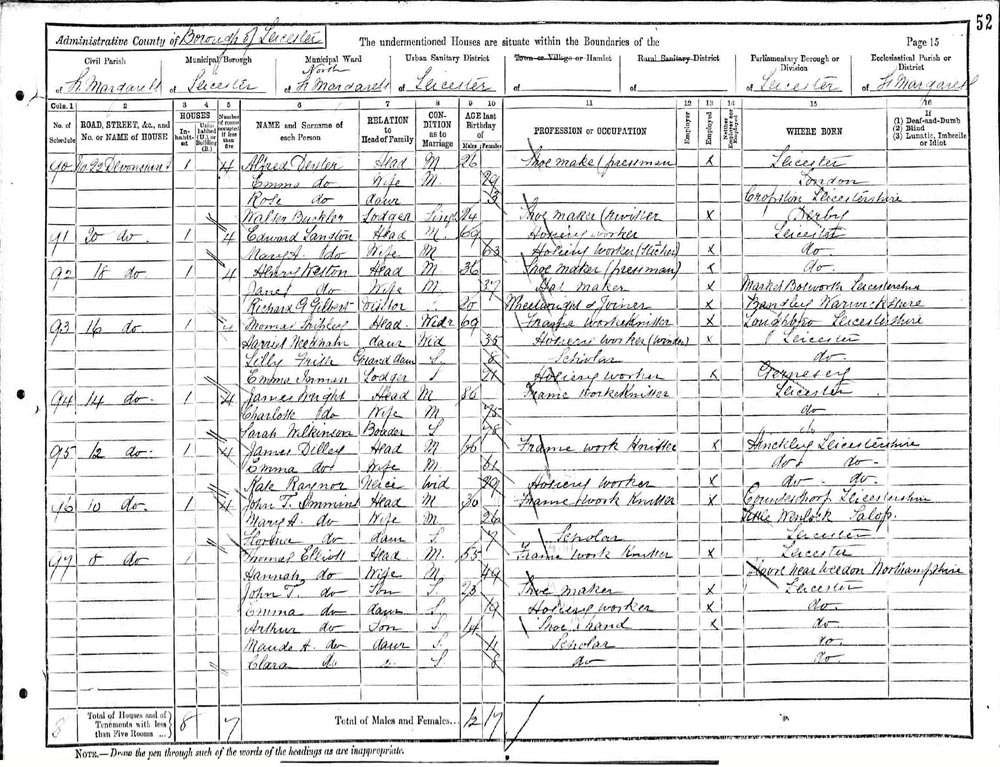 52
Administrative County of Borough of Leicester The undermentioned Houses are situate within the Boundaries of the Page 15
Civil Parish Municipal Borough Municipal Ward Urban Sanitary District Town or Village or Hamlet Rural Sanitary District Parliamentary Borough or Division Ecclesiastical Parish or District
of St Margarets of Leicester of North St Margarets of Leicester of of of Leicester of St Margarets
Cols. 1 2 3 4 5 6 7 8 9 10 11 12 13 14 15 16
No. of Schedule ROAD, STREET, &c., and No. or NAME of HOUSE HOUSES Inhabited Uninhabited (U.) or Building (B.) Number of rooms occupied if less than five NAME and Surname of each Person RELATION to Head of Family CONDITION as to Marriage AGE last Birthday of Males Females PROFESSION or OCCUPATION Employer Employed Neither Employer nor Employed WHERE BORN If (1) Deaf-and-Dumb (2) Blind (3) Lunatic, Imbecile or Idiot
90 22 Devonshire 1 4 Alfred Dexter Head M 26 Shoe make (pressman X Leicester
Emma do Wife M 29 London
Rose do daur 3 Cropston Leicestershire
Walter Buckler Lodger Single 24 Shoe maker (rivitter X Derby
91 20 do 1 4 Edward Langton Head M 69 Hosiery worker Leicester
Mary A. do Wife M 63 Hosiery worker (Sticher) X do.
92 18 do 1 4 Henry Weston Head M 36 Shoe maker (pressman) X do
Janet do Wife M 37 Hat maker X Market Bosworth Leicestershire
Richard G Gilbert Visitor 20 Wheelwright & Joiner X Warwickshire
93 16 do. 1 4 Thomas Head. Widr 69 Frame Work Knitter X Loughbro Leicestershire
Harriet daur Wid 35 Hosiery worker (Winder) X Leicester
Lilly Grand daur S 8 Scholar do.
Emma Inman Lodger S 21 Hosiery worker X Gernesey
94 14 do. 1 4 James Wright Head M 80 Frame Work Knitter Leicester
Charlotte do Wife M 75 do
Sarah Wilkinson Boader S 48 do
95 12 do. 1 4 James Dilley Head M 66 Frame work Knitter X Hinckley Leicestershire
Emma do Wife M 61 do. do.
Kate Raynor Neice Wid 29 Hosiery worker X do. do.
96 10 do 1 4 John T. Head M 30 Frame Work Knitter X Leicestershire
Mary A. do Wife M 26 Little Wenlock Salop.
Florence do daur S 7 Scholar Leicester
97 8 do 1 Thomas Elliott Head. M. 55 Frame Work Knitter X Leicester
Hannah do Wife M 49 near Weedon Northamptshire
John T. do Son S. 23 Shoe maker X Leicester
Emma do daur S. 19 Hosiery worker X do.
Arthur do Son S 14 Shoe hand X do.
Maude A. do daur S. 11 Scholar do.
Clara do do S 8 do do.
8 Total of Houses and of Tenements with less than Five Rooms ... 8 7 Total of Males and Females... 12 17
NOTE.—Draw the pen through such of the words of the headings as are inappropriate.